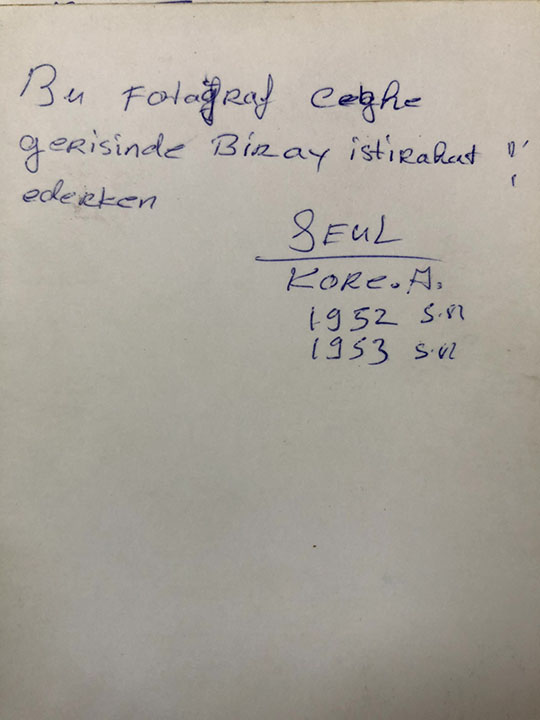 Bu Fotağraf Cebhe
gerisinde Biray istirahat
ederken
SEUL
KORE.A.
1952
1953